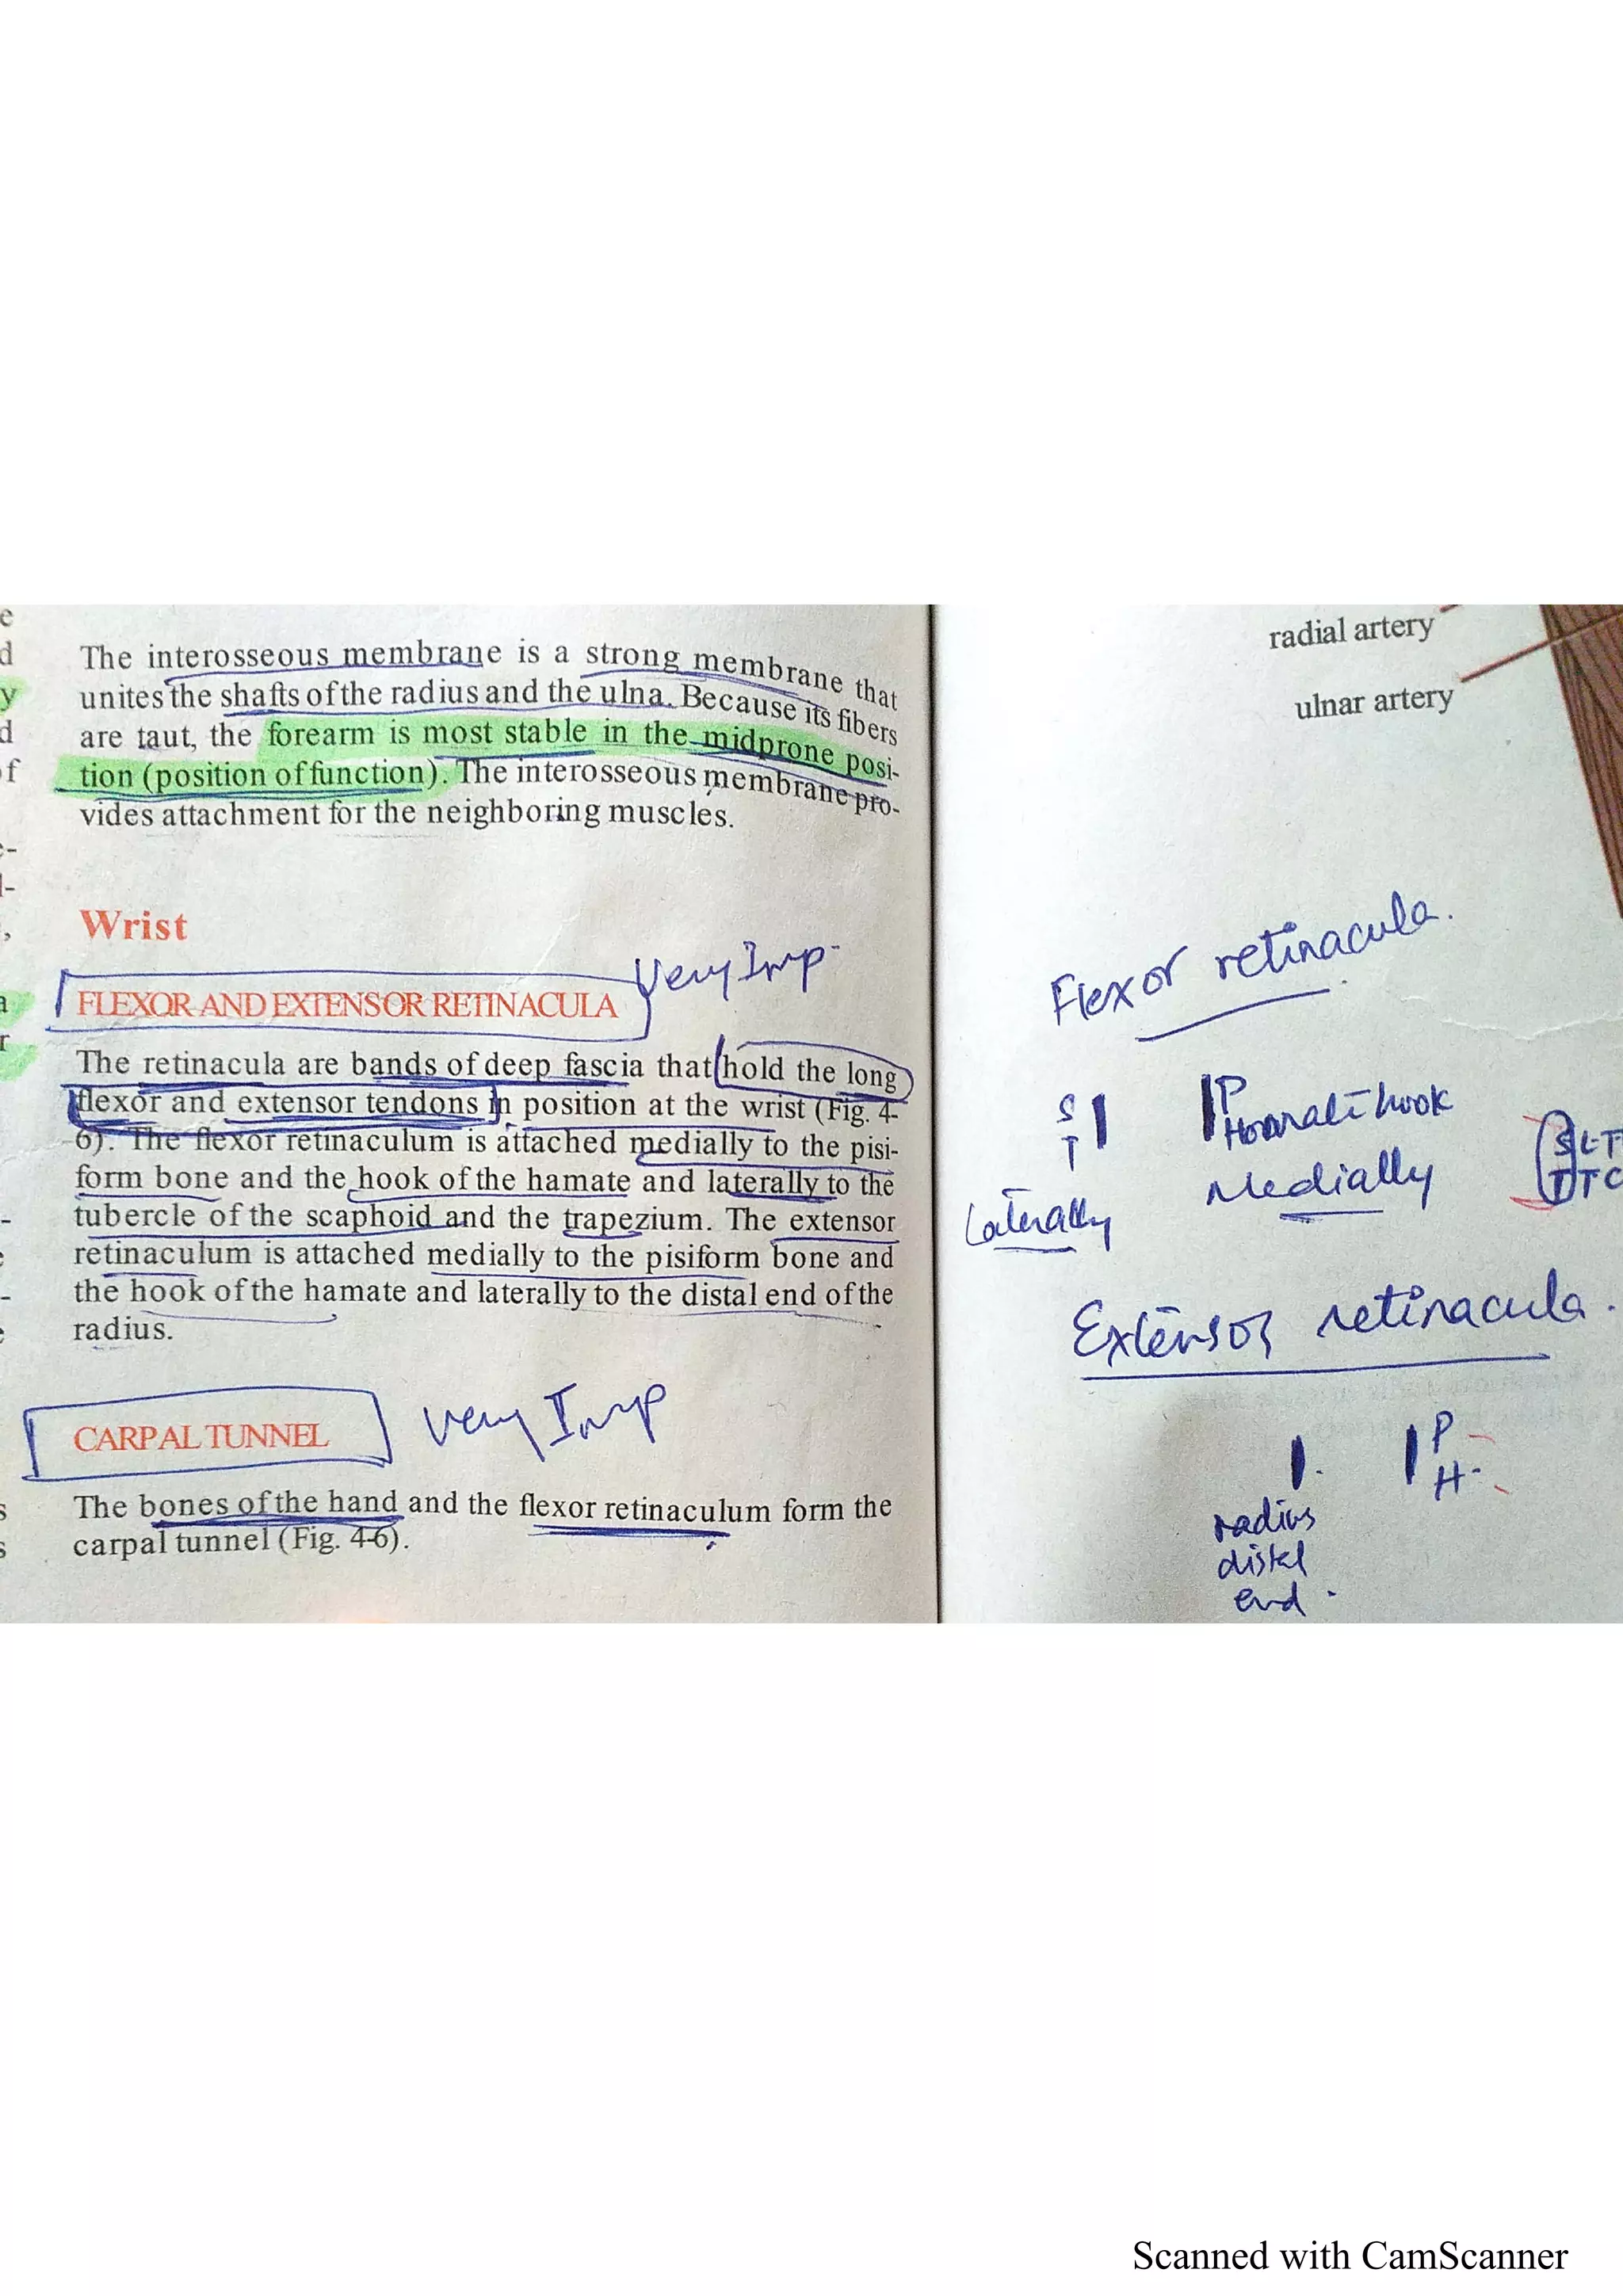 The interosseous membrane is a strong membrane that
unites the shafts of the radius and the ulna. Because its fibers
are taut, the forearm is most stable in the midprone posi-
tion (position of function). The interosseous membrane pro-
vides attachment for the neighboring muscles.
Wrist
Very Imp
FLEXOR AND EXTENSOR RETINACULA
The retinacula are bands of deep fascia that hold the long
flexor and extensor tendons in position at the wrist (Fig. 4-
6). The flexor retinaculum is attached medially to the pisi-
form bone and the hook of the hamate and laterally to the
tubercle of the scaphoid and the trapezium. The extensor
retinaculum is attached medially to the pisiform bone and
the hook of the hamate and laterally to the distal end of the
radius.
CARPAL TUNNEL
Very Imp
The bones of the hand and the flexor retinaculum form the
carpal tunnel (Fig. 4-6).
radial artery
ulnar artery
Flexor retinacula.
S
T
P
hook
Laterally
Medially
SLT
TTC
Extensor retinacula.
P
H
radius
distal
end.
Scanned with CamScanner